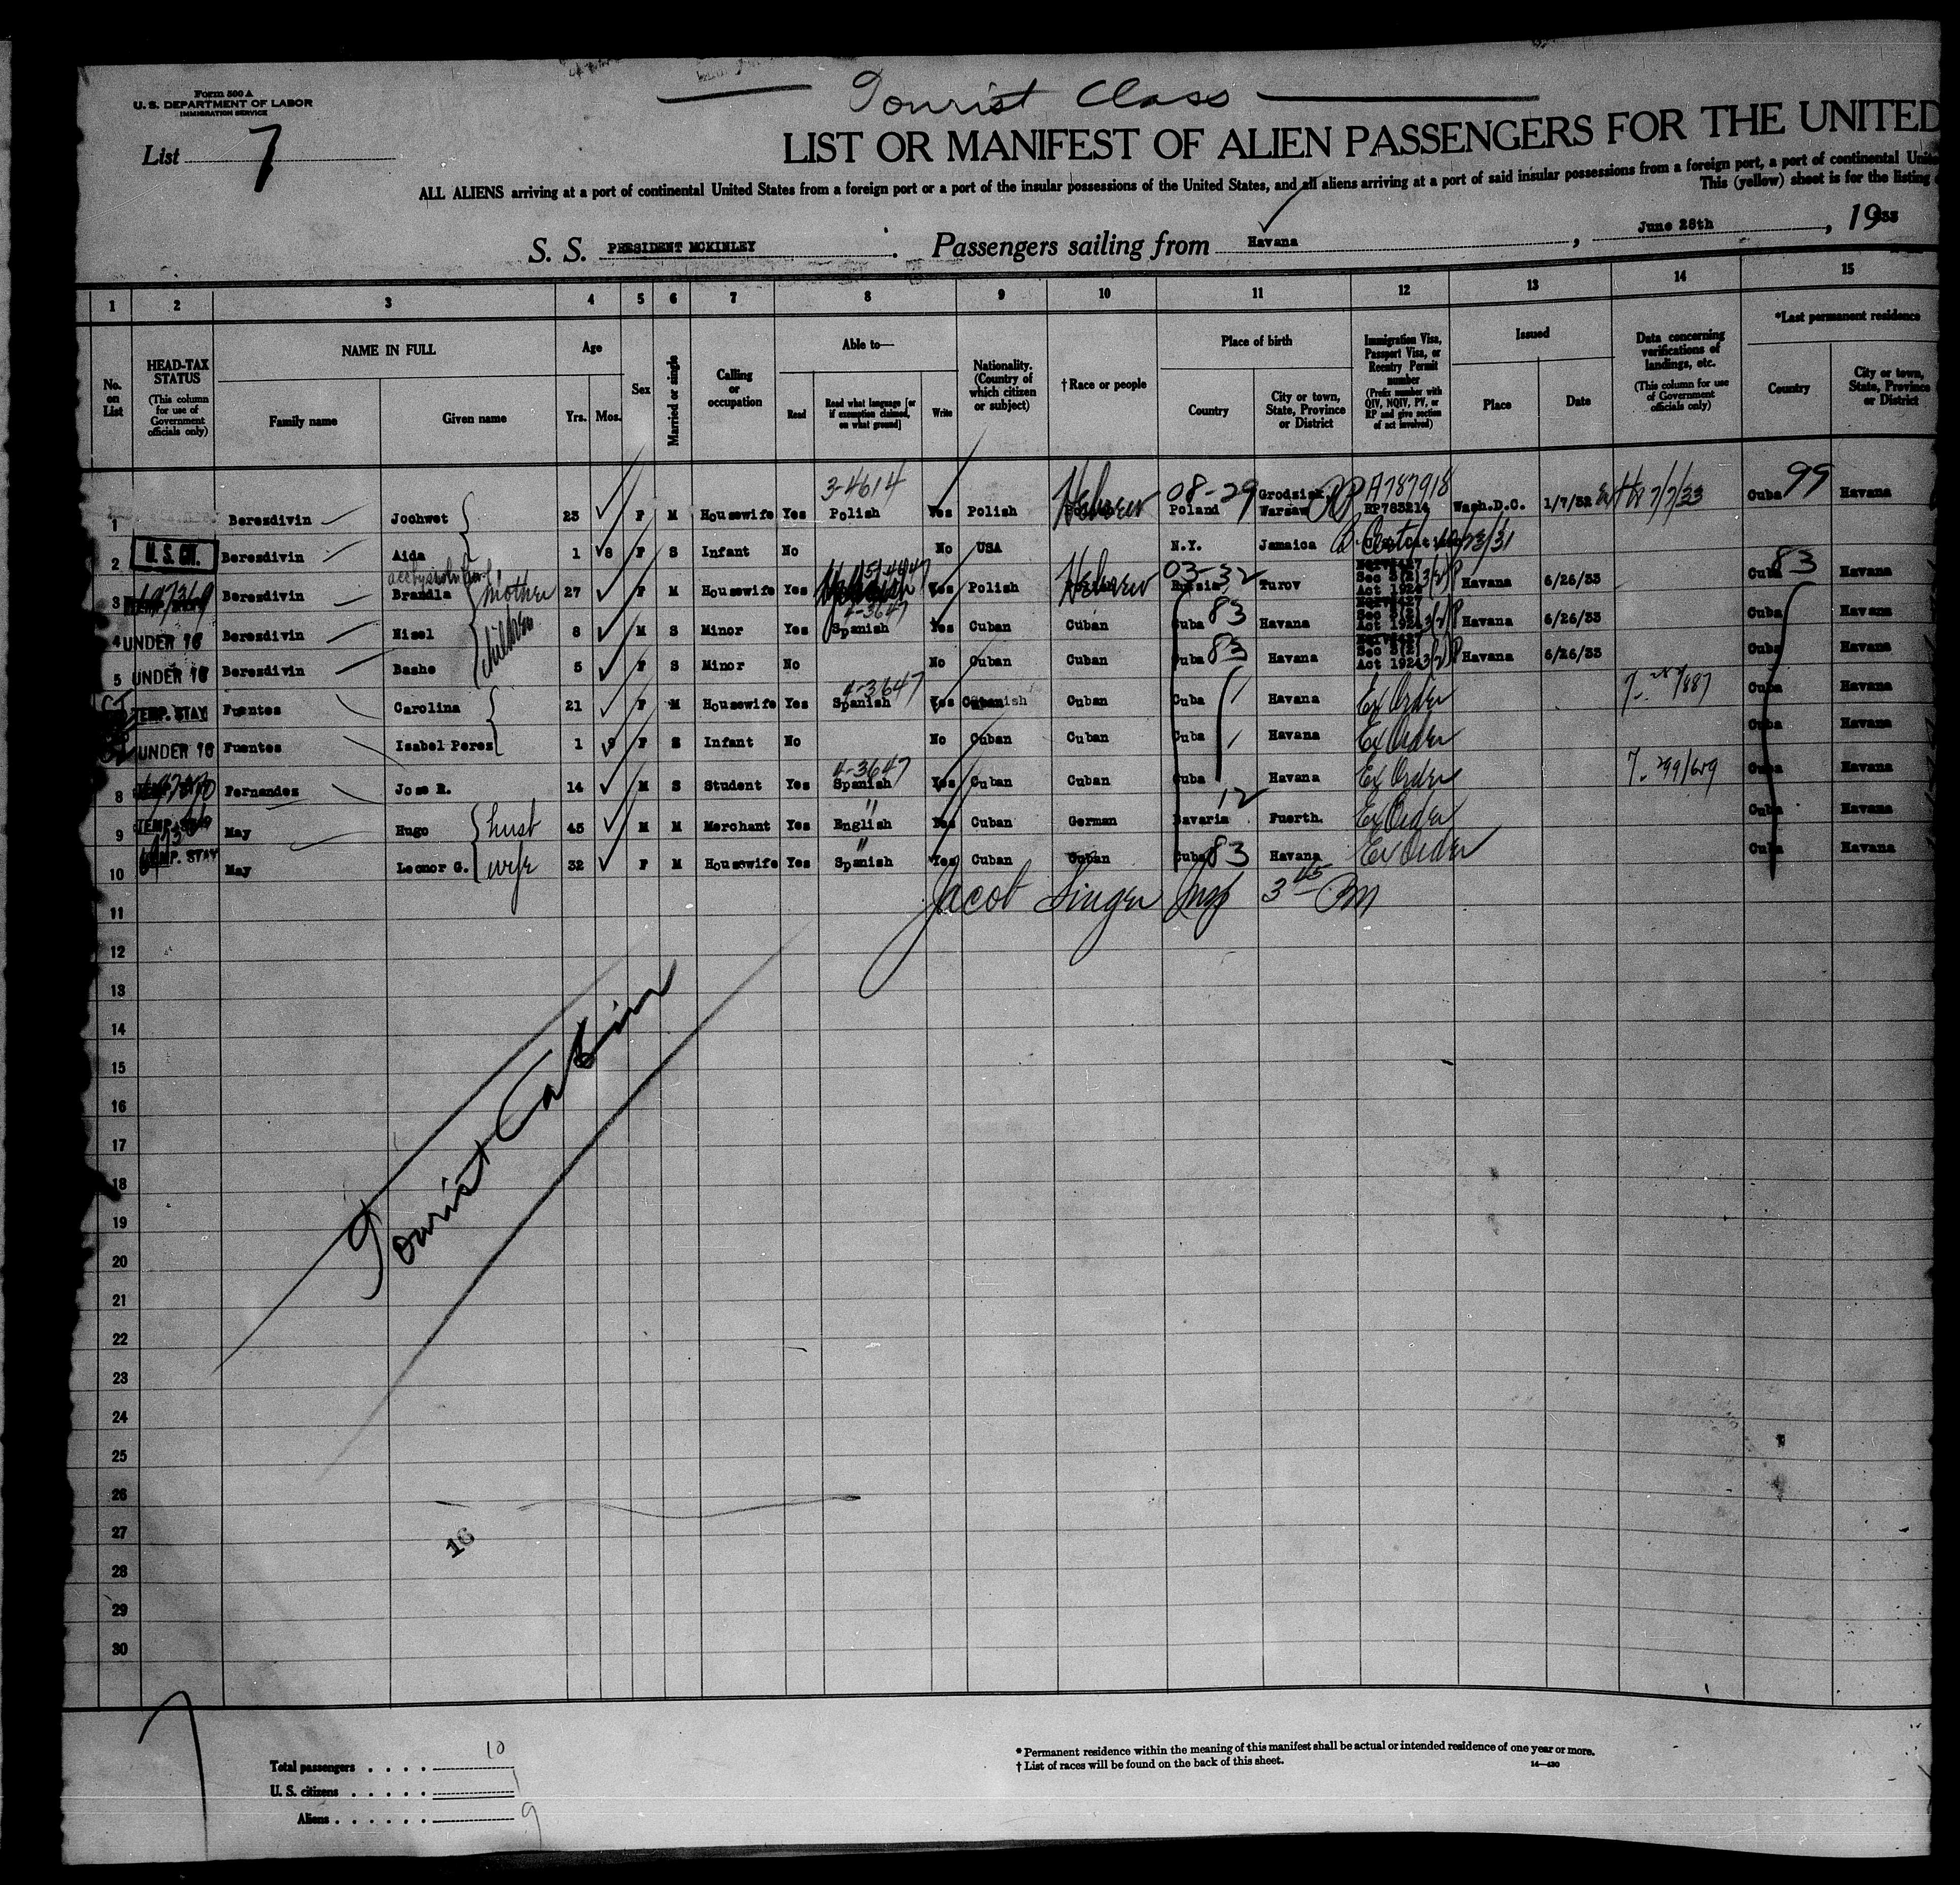 Tourist Class
Form 500 A
U. S. DEPARTMENT OF LABOR
IMMIGRATION SERVICE
List 7
LIST OR MANIFEST OF ALIEN PASSENGERS FOR THE UNITED
ALL ALIENS arriving at a port of continental United States from a foreign port or a port of the insular possessions of the United States, and all aliens arriving at a port of said insular possessions from a foreign port, a port of continental
This (yellow) sheet is for the listing
S. S. PRESIDENT MCKINLEY . Passengers sailing from Havana , June 28th , 1933
1 2 3 4 5 6 7 8 9 10 11 12 13 14 15
No. on List
HEAD-TAX STATUS (This column for use of Government officials only)
NAME IN FULL Family name Given name
Age Yrs. Mos.
Sex
Married or single
Calling or occupation
Able to— Read Read what language [or if exemption claimed, on what ground] Write
Nationality. (Country of which citizen or subject)
†Race or people
Place of birth Country City or town, State, Province or District
Immigration Visa, Passport Visa, or Reentry Permit number (Prefix number with QIV, NQIV, PV, or RP and give section of act involved)
Issued Place Date
Data concerning verifications of landings, etc. (This column for use of Government officials only)
*Last permanent residence Country City or town, State, Province or District
3-4614 08-29 A787918 99
1 Beresdivin Jochwet 23 F M Housewife Yes Polish Yes Polish Hebrew Poland Grodzisk, Warsaw RP783214 Wash.D.C. 1/7/32 7/7/33 Cuba Havana
2 U. S. CIT. Beresdivin Aida 1 8 F S Infant No No USA N.Y. Jamaica
03-32 83
3 Beresdivin Brandla mother 27 F M Housewife Yes Yes Polish Hebrew Russia Turov Sec 3(2) Act 1924 Havana 6/26/33 Cuba Havana
4-3647
4 UNDER 16 Beresdivin Misel children 8 M S Minor Yes Spanish Yes Cuban Cuban Cuba 83 Havana Sec 3(2) Act 1924 Havana 6/26/33 Cuba Havana
5 UNDER 16 Beresdivin Bashe 5 F S Minor No No Cuban Cuban Cuba 83 Havana Sec 3(2) Act 1924 Havana 6/26/33 Cuba Havana
4-3647
TEMP. STAY Fuentes Carolina 21 F M Housewife Yes Spanish Yes Cuban Cuban Cuba Havana Ex Order Cuba Havana
UNDER 16 Fuentes Isabel Perez 1 9 F S Infant No No Cuban Cuban Cuba Havana Ex Order Cuba Havana
4-3647
8 Fernandez Jose R. 14 M S Student Yes Spanish Yes Cuban Cuban Cuba Havana Ex Order Cuba Havana
9 TEMP. STAY May Hugo husb 45 M M Merchant Yes English Yes Cuban German Bavaria 12 Fuerth. Ex Order Cuba Havana
10 TEMP. STAY May Leonor G. wife 32 F M Housewife Yes Spanish Yes Cuban Cuban Cuba 83 Havana Ex Order Cuba Havana
11 Jacob Singer Insp 3 45 PM
12
13
14
15
16
17
18
19
20
21
22
23
24
25
26
27
28
29
30
Tourist Cabin
16
Total passengers . . . . 10
U. S. citizens . . . . . 1
Aliens . . . . . . 9
* Permanent residence within the meaning of this manifest shall be actual or intended residence of one year or more.
† List of races will be found on the back of this sheet.
14—430